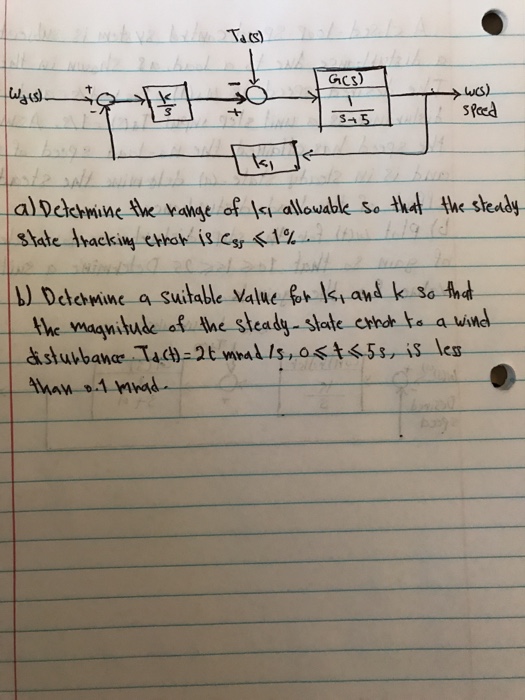 Td(s)
G(s)
Wd(s)
+
-
K
s
-
+
1
s+5
w(s)
speed
K1
a) Determine the range of K1 allowable so that the steady
state tracking error is ess ≤ 1%.
b) Determine a suitable value for K1 and K so that
the magnitude of the steady-state error to a wind
disturbance Td(t) = 2t mrad/s, 0 ≤ t ≤ 5s, is less
than 0.1 mrad.